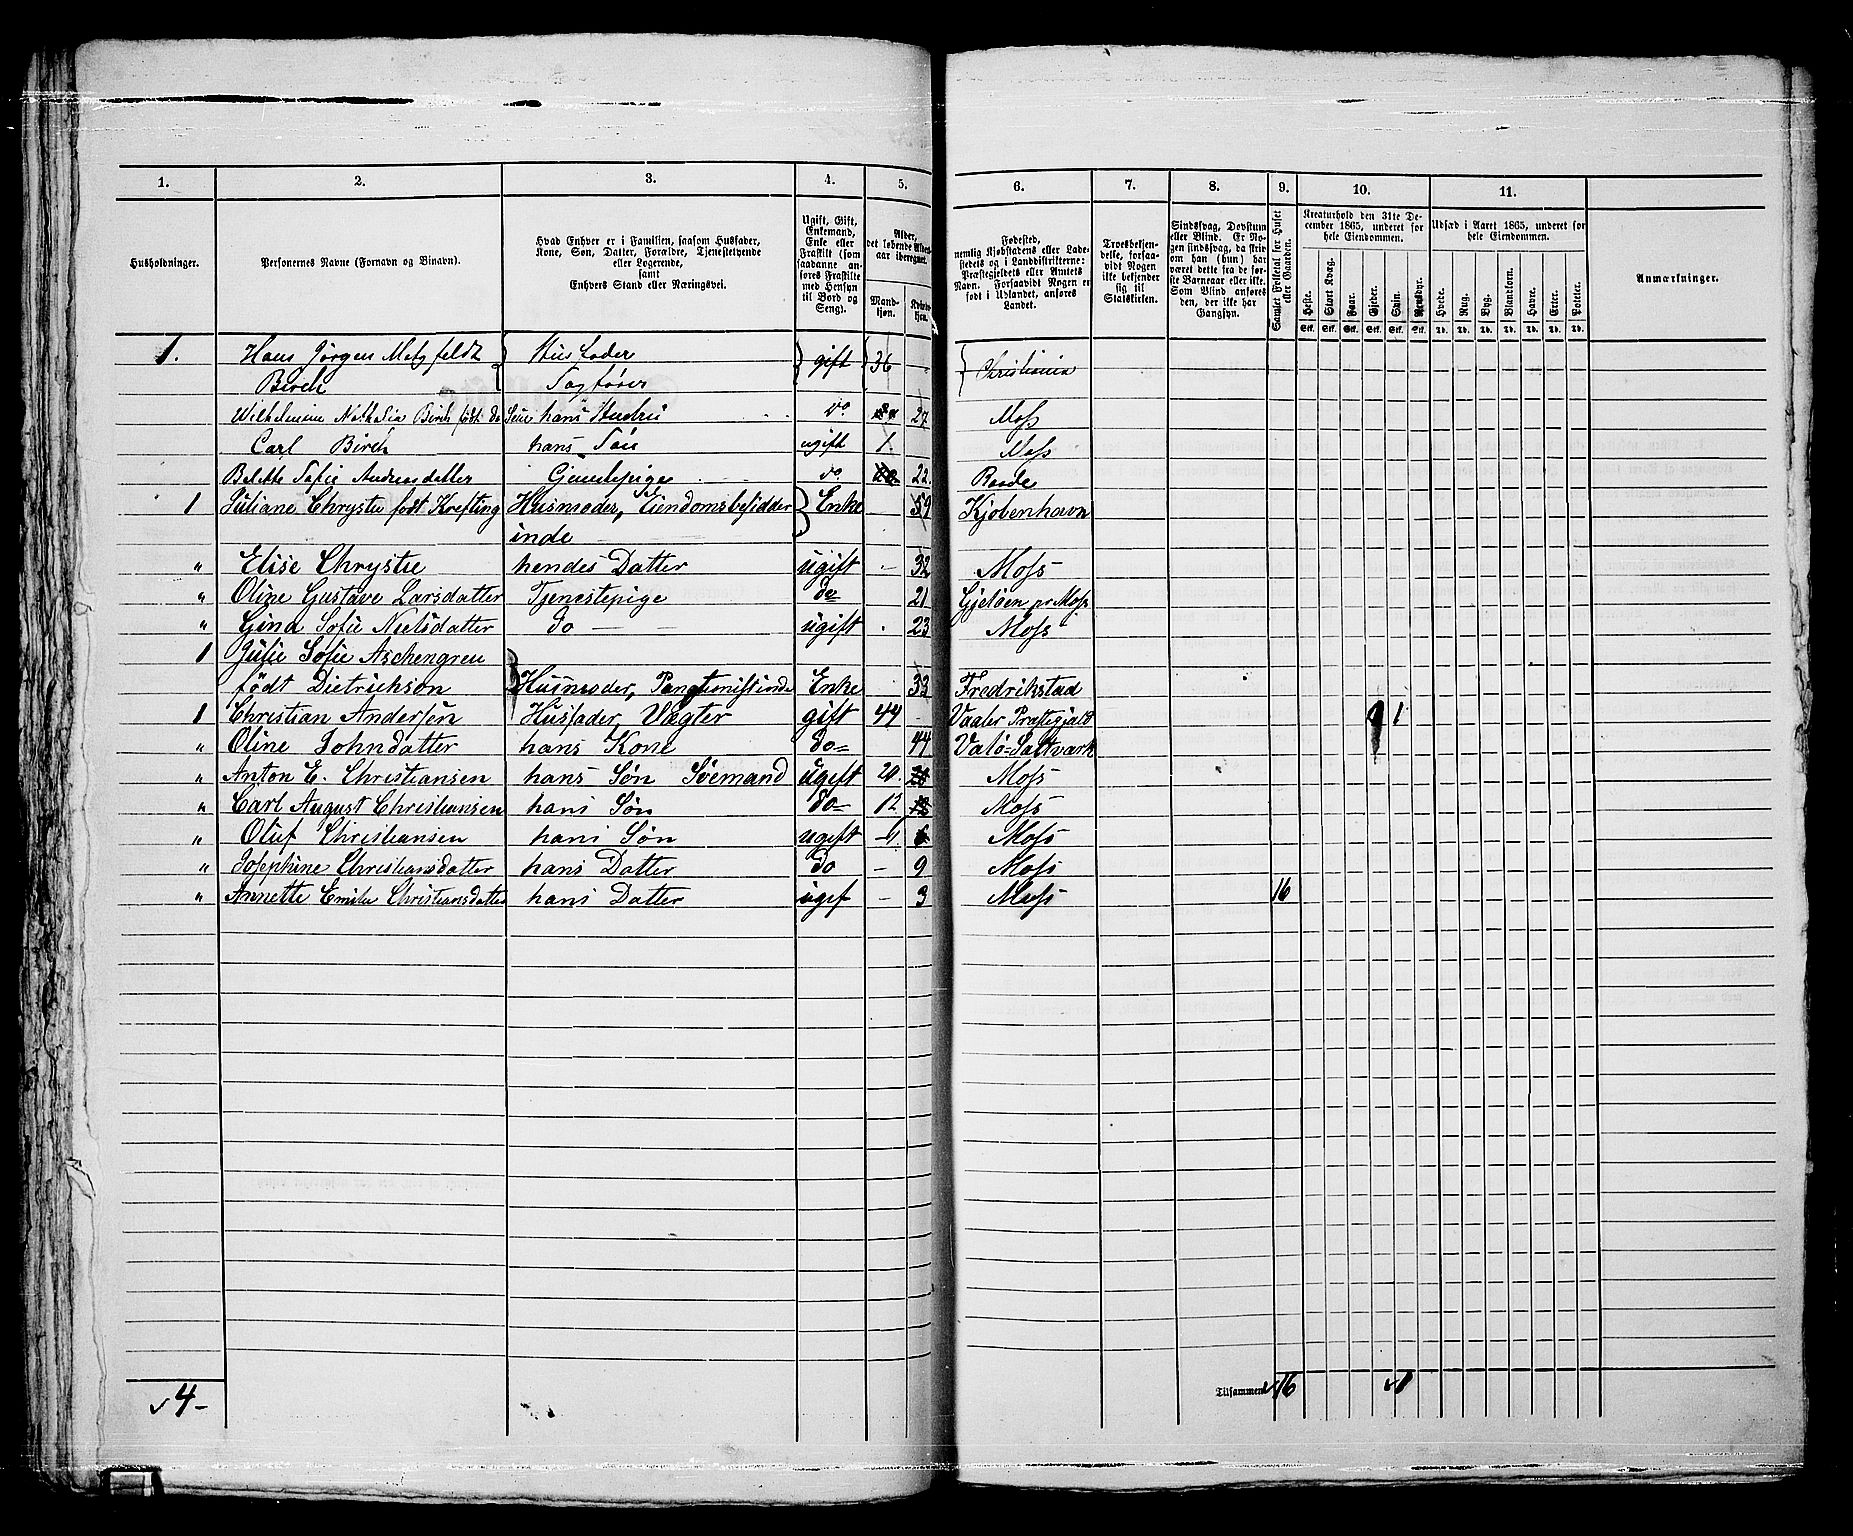 1. 2. 3. 4. 5. 6. 7. 8. 9. 10. 11.
Husholdninger.
Personernes Navne (Fornavn og Binavn).
Hvad Enhver er i Familien, saasom Husfader,
Kone, Søn, Datter, Forældre, Tjenestetyende
eller Logerende,
samt
Enhvers Stand eller Næringsvei.
Ugift, Gift,
Enkemand,
Enke eller
Fraskilt (som
saadanne an-
føres Fraskilte
med Hensyn
til Bord og
Seng).
Alder,
det løbende Alders-
aar iberegnet.
Mand-
kjøn.
Kvinde-
kjøn.
Fødested,
nemlig Kjøbstadens eller Lade-
stedets og i Landdistrikterne:
Præstegjeldets eller Amtets
Navn. Forsaavidt Nogen er
født i Udlandet, anføres
Landet.
Troesbekjen-
delse, forsaa-
vidt Nogen
ikke bekjender
sig til
Statskirken.
Sindssvag, Døvstum
eller Blind. Er No-
gen sindssvag, da skri-
ves, om han (hun) har
været dette fra de før-
ste Barneaar eller ikke.
Som Blind anføres
den, der ikke har
Gangsyn.
Samlet Folketal for Huset
eller Gaarden.
Kreaturhold den 31te De-
cember 1865, underet for
hele Eiendommen.
Heste. Stort Kvæg. Faar. Gjeder. Sviin. Rensdyr.
Stk. Stk. Stk. Stk. Stk. Stk.
Udsæd i Aaret 1865, underet for
hele Eiendommen.
Hvede. Rug. Byg. Blandkorn. Havre. Erter. Poteter.
Td. Td. Td. Td. Td. Td. Td.
Anmærkninger.
1. Hans Jørgen Metzfeldt Husfader gift 36 Christiania
Birch
Wilhelmine Nathalia Birch født hans Hustru do 27 Moss
Carl Birch hans Søn ugift 1. Moss
Sofie Andreasdatter do 22 Raade
1 Juliane Chrystie født Krefting Husmoder, Eiendomsbesidder Enke 59 Kjøbenhavn
inde
" Elise Chrystie hendes Datter ugift - 32 Moss
" Oline Gustave Larsdatter Tjenestepige do 21 Gjeløen pr Moss
" Gina Sofie Nielsdatter do ugift 23 Moss
1 Julie Sofie Aschengreen
født Dietrichson Husmoder, Pangtionistinde Enke 33 Fredrikstad
1 Christian Andersen Husfader, Vægter gift 44 Vaaler Præstegjeld 1
" Oline Johndatter hans Kone do 44 Valø Saltværk
" Anton E. Christiansen hans Søn Søemand ugift 20. Moss
" Carl August Christiansen hans Søn do 12 Moss
" Oluf Christiansen hans Søn ugift 6 Moss
" Josephine Christiansdatter hans Datter do - 9 Moss
" Annette Emilie Christiansdatter hans Datter ugif - 3 Moss 16
4 Tilsammen 16 1